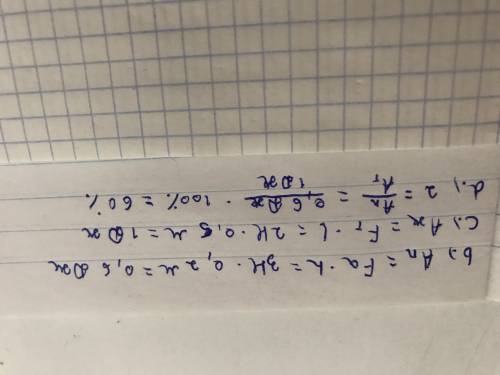 b.) Aп = Fа · h = 3Н · 0,2 м = 0,6 Дж
c.) Aж = Fт · l = 2Н · 0,5 м = 1 Дж
d.) 2 = Aп/Aт = 0,6 Дж/1 Дж · 100% = 60%